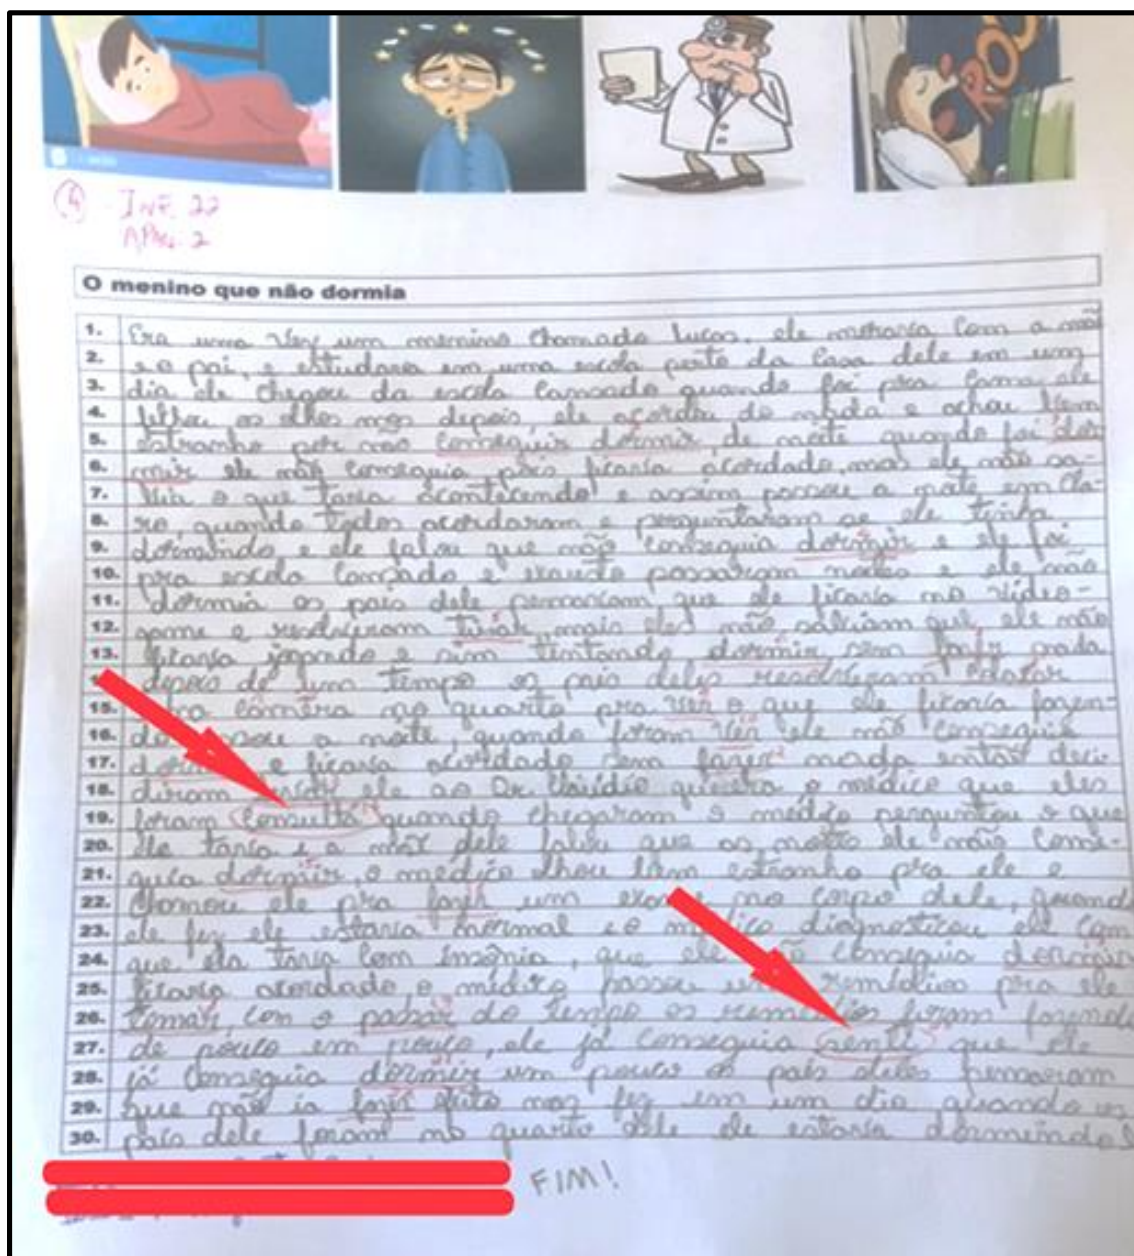 RO
4 - INF. 22
APAG. 2
O menino que não dormia
1. Era uma vez um menino chamado Lucas, ele morava com a mãe
2. e o pai, e estudava em uma escola perto da casa dele em um
3. dia ele chegou da escola cansado quando foi pra cama, ele
4. fechou os olhos mas depois ele acordou do nada e achou bem
5. estranho por nao conseguir dormir de noite quando foi dor
6. mir ele não conseguia pois ficava acordado, mas ele não sa-
7. bia o que tava acontecendo e assim passou a noite em cla-
8. ro, quando todos acordaram e perguntaram se ele tinha
9. dormindo, e ele falou que não conseguia dormir e ele foi
10. pra escola cansado e passaram noites e ele não
11. dormia os pais dele pensavam que ele ficava no vídeo-
12. game e resolveram tirar mais eles não sabiam que ele não
13. ficava jogando e sim tentando dormir sem fazer nada
depois de um tempo os pais deles resolveram colocar
15. câmera no quarto pra ver o que ele ficava fazen-
16. a noite, quando foram ver ele não conseguia
17. e ficava acordado sem fazer nada então deci-
18. diram ele ao Dr. o médico que eles
19. foram consultá quando chegaram o médico perguntou o que
20. ele tava e a mãe dele falou que as noites ele não conse-
21. guia dormir, o medico olhou bem estranho pra ele e
22. chamou ele pra fazer um no corpo dele, quando
23. ele fez ele estava normal e o diagnosticou ele com
24. que ela tava com insônia, que ele conseguia dormir
25. ficava acordado, o médico passou pra ele
26. tomar com o passar do tempo os foram fazendo
27. de pouco em pouco, ele já conseguia senti que ele
28. já conseguia dormir um pouco os pais deles pensaram
29. que não ia fazer efeito mas fez em um dia quando os
30. pais dele foram no quarto dele ele estava dormindo
FIM!